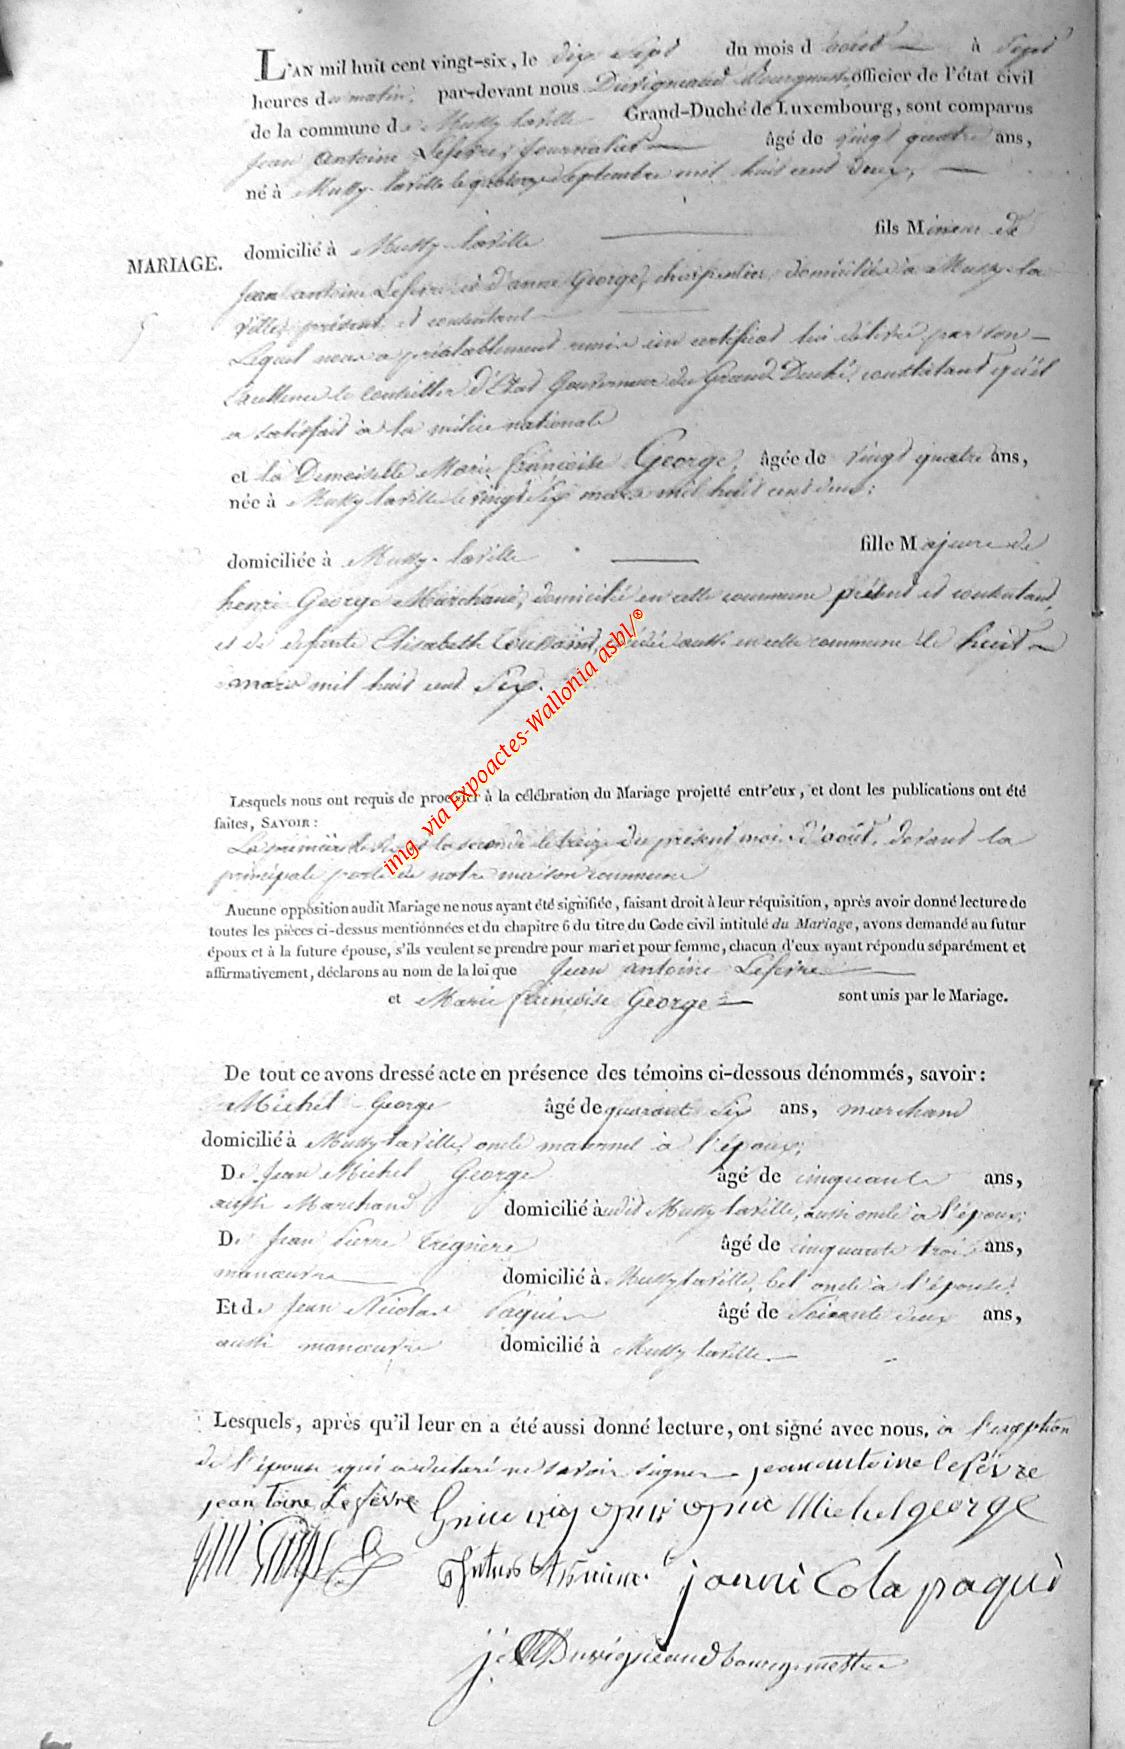 L'AN mil huit cent vingt-six, le dix sept du mois d'août à sept
heures du matin, par-devant nous Duvigneaud Bourgmestre, officier de l'état civil
de la commune de Mussy-laville Grand-Duché de Luxembourg, sont comparus
Jean Antoine Lefevre, journalier âgé de vingt quatre ans,
né à Mussy-laville le quatorze septembre mil huit cent deux,
domicilié à Mussy-laville fils Mineur de
MARIAGE.
Jean antoine Lefevre et d'anne George, charpentier, domiciliés à Mussy-la
ville, présent et consentant
Lequel nous a préalablement remis un certificat lui délivré par son
Excellence le Conseiller d'Etat Gouverneur du Grand Duché, constatant qu'il
a satisfait à la milice nationale
et la Demoiselle Marie françoise George, âgée de vingt quatre ans,
née à Mussy laville le vingt six mars mil huit cent deux;
domiciliée à Mussy-laville fille Majeure de
henri George Marchand, domicilié en cette commune présent et consentant,
et de defunte Elisabeth Toussaint, décédée aussi en cette commune le huit
mars mil huit cent six.
Lesquels nous ont requis de procéder à la célébration du Mariage projetté entr'eux, et dont les publications ont été
faites, SAVOIR:
La première le six et la seconde le treize du présent mois d'août, devant la
principale porte de notre maison commune
Aucune opposition audit Mariage ne nous ayant été signifiée, faisant droit à leur réquisition, après avoir donné lecture de
toutes les pièces ci-dessus mentionnées et du chapitre 6 du titre du Code civil intitulé du Mariage, avons demandé au futur
époux et à la future épouse, s'ils veulent se prendre pour mari et pour femme, chacun d'eux ayant répondu séparément et
affirmativement, déclarons au nom de la loi que Jean antoine Lefevre
et Marie françoise George sont unis par le Mariage.
De tout ce avons dressé acte en présence des témoins ci-dessous dénommés, savoir:
Michel George âgé de quarante six ans, marchand
domicilié à Mussy laville, oncle maternel à l'époux;
De Jean Michel George âgé de cinquante ans,
aussi Marchand domicilié audit Mussy laville, aussi oncle à l'époux;
De Jean Pierre Tregniere âgé de cinquante trois ans,
manœuvre domicilié à Mussy laville, bel oncle à l'épouse;
Et de Jean Nicolas Paquis âgé de soixante deux ans,
aussi manœuvre domicilié à Mussy laville
Lesquels, après qu'il leur en a été aussi donné lecture, ont signé avec nous, à l'exception
de l'épouse qui a déclaré ne savoir signer jean antoine lefévre
jean toine Lefèvre Michel george
jannicola paqui
j: Duvigneaud bourgmestre
img. via Expoactes-Wallonia asbl/®